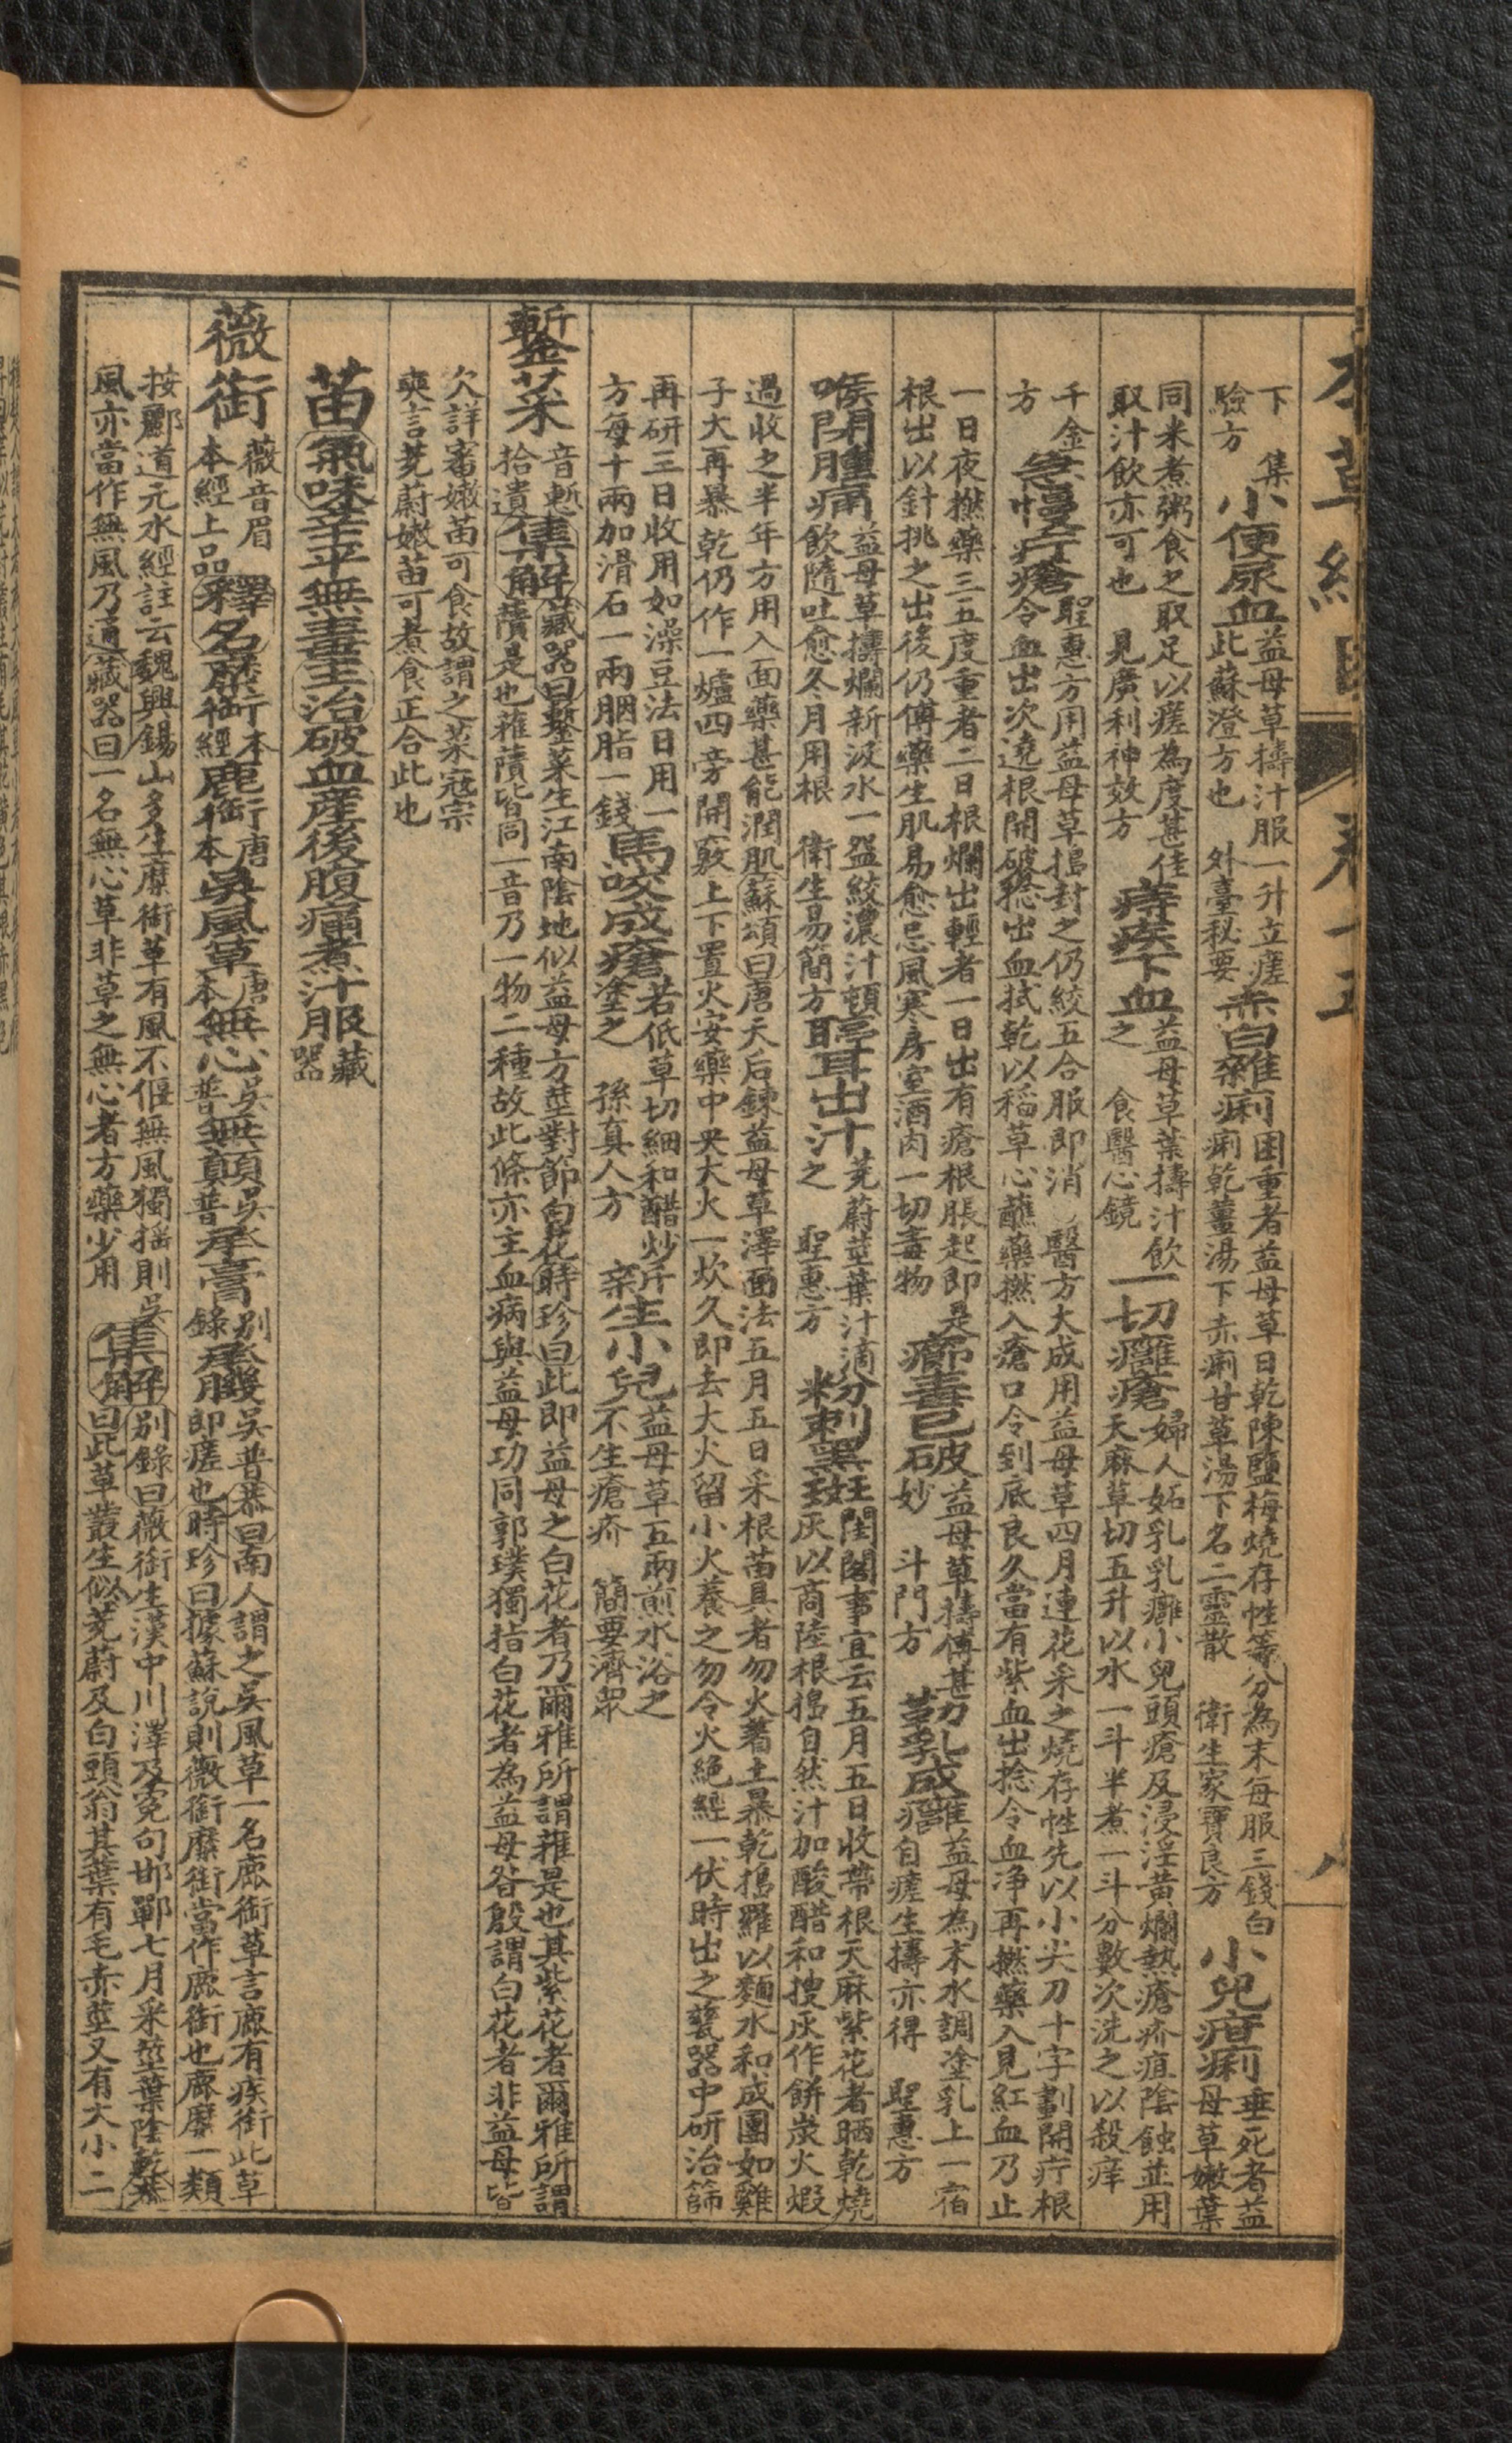 本草綱目 卷十五 八
下 集驗方 小便尿血 益母草擣汁服一升立瘥此蘇澄方也 外臺秘要 赤白雜痢 困重者益母草日乾陳鹽梅燒存性等分為末每服三錢白痢乾薑湯下赤痢甘草湯下名二靈散 衛生家寶良方 小兒疳痢 垂死者益母草嫩葉
同米煮粥食之取足以瘥為度甚佳取汁飲亦可也 見廣利神效方 痔疾下血 益母草葉擣汁飲之 食醫心鏡 一切癰瘡 婦人妬乳乳癰小兒頭瘡及浸淫黄爛熱瘡疥疽陰蝕並用天麻草切五升以水一斗半煮一斗分數次洗之以殺痒
千金方 急慢疔瘡 聖惠方用益母草搗封之仍絞五合服即消 醫方大成用益母草四月連花采之燒存性先以小尖刀十字劃開疔根令血出次遶根開破捻出血拭乾以稻草心蘸藥撚入瘡口令到底良久當有紫血出捻令血净再撚藥入見紅血乃止
一日夜撚藥三五度重者二日根爛出輕者一日出有瘡根脹起即是根出以針挑之出後仍傅藥生肌易愈忌風寒房室酒肉一切毒物 癤毒已破 益母草擣傅甚妙 斗門方 勒乳成癰 益母為末水調塗乳上一宿自瘥生擣亦得 聖惠方
喉閉腫痛 益母草擣爛新汲水一盌絞濃汁頓飲隨吐愈冬月用根 衛生易簡方 聤耳出汁 茺蔚莖葉汁滴之 聖惠方 粉刺黑䵟 閨閣事宜云五月五日收帶根天麻紫花者晒乾燒灰以商陸根搗自然汁加酸醋和搜灰作餅炭火煅
過收之半年方用入面藥甚能潤肌蘇頌曰唐天后鍊益母草澤面法五月五日采根苗具者勿火著土暴乾搗羅以麵水和成團如雞子大再暴乾仍作一爐四旁開竅上下置火安藥中央大火一炊久即去大火留小火養之勿令火絕經一伏時出之甆器中研治篩
再研三日收用如澡豆法日用一方每十兩加滑石一兩胭脂一錢 馬咬成瘡 苦低草切細和醋炒塗之 孫真人方 新生小兒 益母草五兩煎水浴之不生瘡疥 簡要濟眾
䥷菜 音慙拾遺 集解 藏器曰䥷菜生江南陰地似益母方莖對節白花時珍曰此即益母之白花者乃爾雅所謂蓷是也其紫花者爾雅所謂䕲是也蓷䕲皆同一音乃一物二種故此條亦主血病與益母功同郭璞獨指白花者為益母昝殷謂白花者非益母皆
欠詳審嫩苗可食故謂之菜寇宗奭言茺蔚嫩苗可煮食正合此也
苗 氣味 辛平無毒 主治 破血產後腹痛煮汁服 藏器
薇銜 薇音眉本經上品 釋名 麋銜本經鹿銜唐本吳風草唐本無心吳普無顛吳普承膏別錄承肊吳普恭曰南人謂之吳風草一名鹿銜草言鹿有疾銜此草即瘥也時珍曰據蘇說則薇銜麋銜當作鹿銜也鹿麋一類
按酈道元水經註云魏興錫山多生麋銜草有風不偃無風獨搖則吳風亦當作無風乃通藏器曰一名無心草非草之無心者方藥少用 集解 別錄曰薇銜生漢中川澤及寃句邯鄲七月采莖葉陰乾恭曰此草叢生似茺蔚及白頭翁其葉有毛赤莖又有大小二